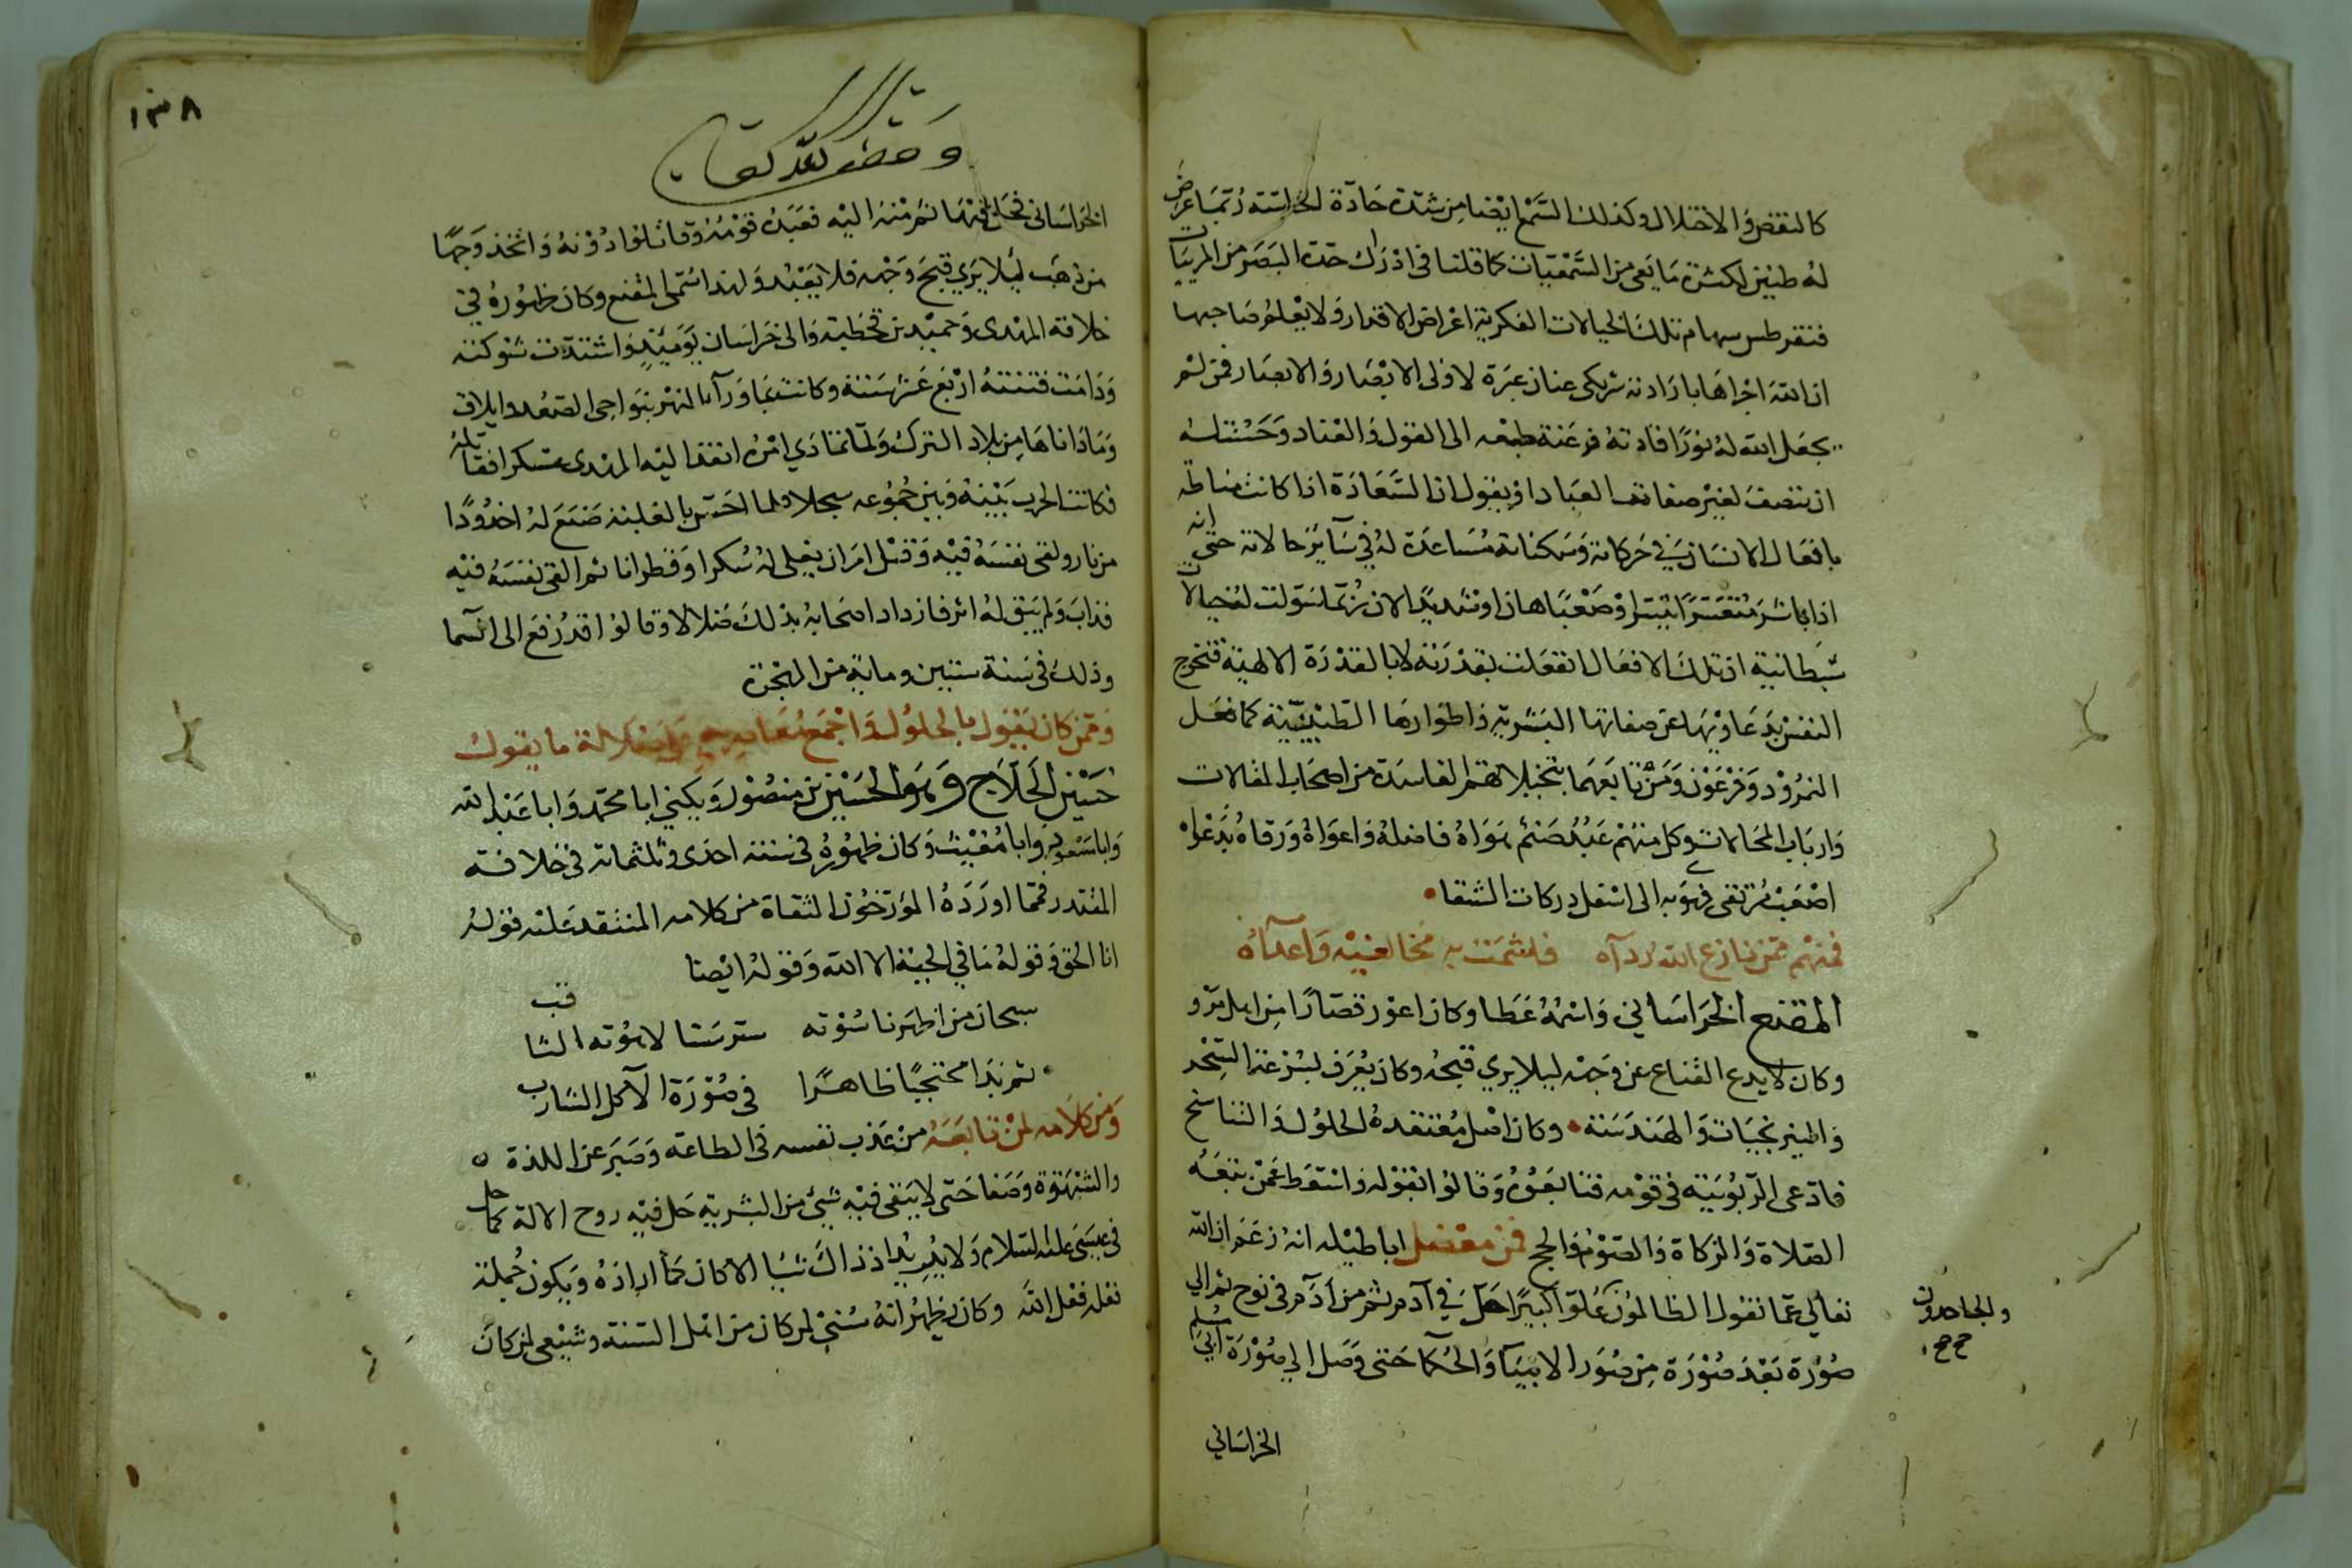 كالنقص والاختلال وكذلك السمع ايضا من شدة حادة الحاسته ربما عرض
له طنين لكثرة ما يعى من السمعيات كما قلنا فى ادراك حدة البصر من المريبات
فتقرطس سهام تلك الخيالات الفكرية اغراض الاقدار ولا يعلم صاحبها
ان الله اجراها بارادته تركى عنان عبرة لاولى الابصار والانصار فمن لم
يجعل الله له نورا قادته فرعنة طبعه الى القول والعناد وحسنت له
ان تتصف لغير صفاتها العباد او يقول ان السعادة اذا كانت مناطة
بافعال الانسان فى حركاته وسكناته مساعدة له فى سآير حالاته حتى انه
اذا باشر متعسرا تيسر او صعبا هان او شديدا لان ربما سولت له خيالات
شيطانية ان تلك الافعال انفعلت بقدرته لا بالقدرة الالهية فتخرج
النفس بدعاويها عن صفاتها البشرية واطوارها الطبيعية كما فعل
النمرود وفرعون ومن تابعهما بتخيلاتهم الفاسدة من اصحاب المقالات
وارباب المحالات وكل منهم عبد صنم هواه فاضله واغواه ورقاه بدعواه
اصعب مرتقى فهوى به الى اسفل دركات الشقا
فمنهم ممن نازع الله رداه فلشمت به مخالفيه واعدآه
المقنع الخراسانى واسمه عطا وكان اعور قصارا من اهل مرو
وكان لا يدع القناع عن وجهه ليلا يرى قبحه وكان يعرف لبتر عن السحر
والنيرنجيات والهندسة وكان اصل معتقده الحلول والتناسخ
فادعى الربوبية فى قومه فتابعوه وقالوا بقوله واسقط عمن تبعه
الصلاة والزكاة والصوم والحج فمن معضل اباطيله انه زعم ان الله
تعالى عما تقول الظالمون علوا كبيرا حل فى آدم ثم من آدم فى نوح ثم الى
صورة بعد صورة من صور الانبيا والحكما حتى وصل الى صورة ابى مسلم
والجاحدون
صح
الخراسانى
١٣٨
وقف لله تعالى
الخراسانى فحل فيها ثم منها اليه فعبده قومه وقاتلوا دونه واتخذ وجها
من ذهب ليلا يرى قبح وجهه فلا يعبد ولهذا سمى المقنع وكان ظهوره فى
خلافة المهدى وحميد بن قحطبة والى خراسان يوميذ واشتدت شوكته
ودامت فتنته اربع عشر سنة وكانت بما ورآ النهر بنواحى الصغد وايلاق
وما داناها من بلاد الترك ولما تمادى امره انفذ اليه المهدى عسكرا فقاتله
فكانت الحرب بينه وبين جموعه سجلا ولما احس بالغلبة صنع له اخدودا
من نار ولقى نفسه فيه وقتل امر ان يغلى له سكرا وقطرانا ثم القى نفسه فيه
فذاب ولم يبق له اثر فازداد اصحابه بذلك ضلالا وقالوا قد رفع الى السما
وذلك فى سنة ستين وماية من الهجرة
وممن كان يقول بالحلول واجمع ما يقول
حسين الحلاج وهو الحسين بن منصور ويكنى ابا محمد وابا عبد الله
وابا مسعود وابا مغيث وكان ظهوره فى سنة احدى وثلثماية فى خلافة
المقتدر فمما اورده المؤرخون الثقاة من كلامه المنتقد عليه قوله
انا الحق وقوله ما فى الجبة الا الله وقوله ايضا
سبحان من اظهر ناسوته سر سنا لاهوته الثاقب
ثم بدا محتجبا ظاهرا فى صورة الآكل الشارب
ومن كلامه لمن تابعه من عذب نفسه فى الطاعة وصبر عن اللذة
والشهوة وصفا حتى لا يبقى فيه شئ من البشرية حل فيه روح الاله كما حل
فى عيسى عليه السلام ولا يريد اذ ذاك شيا الا كان كما اراده ويكون جملة
فعله فعل الله وكان يظهر انه سنى لمن كان من اهل السنة وشيعى لمن كان